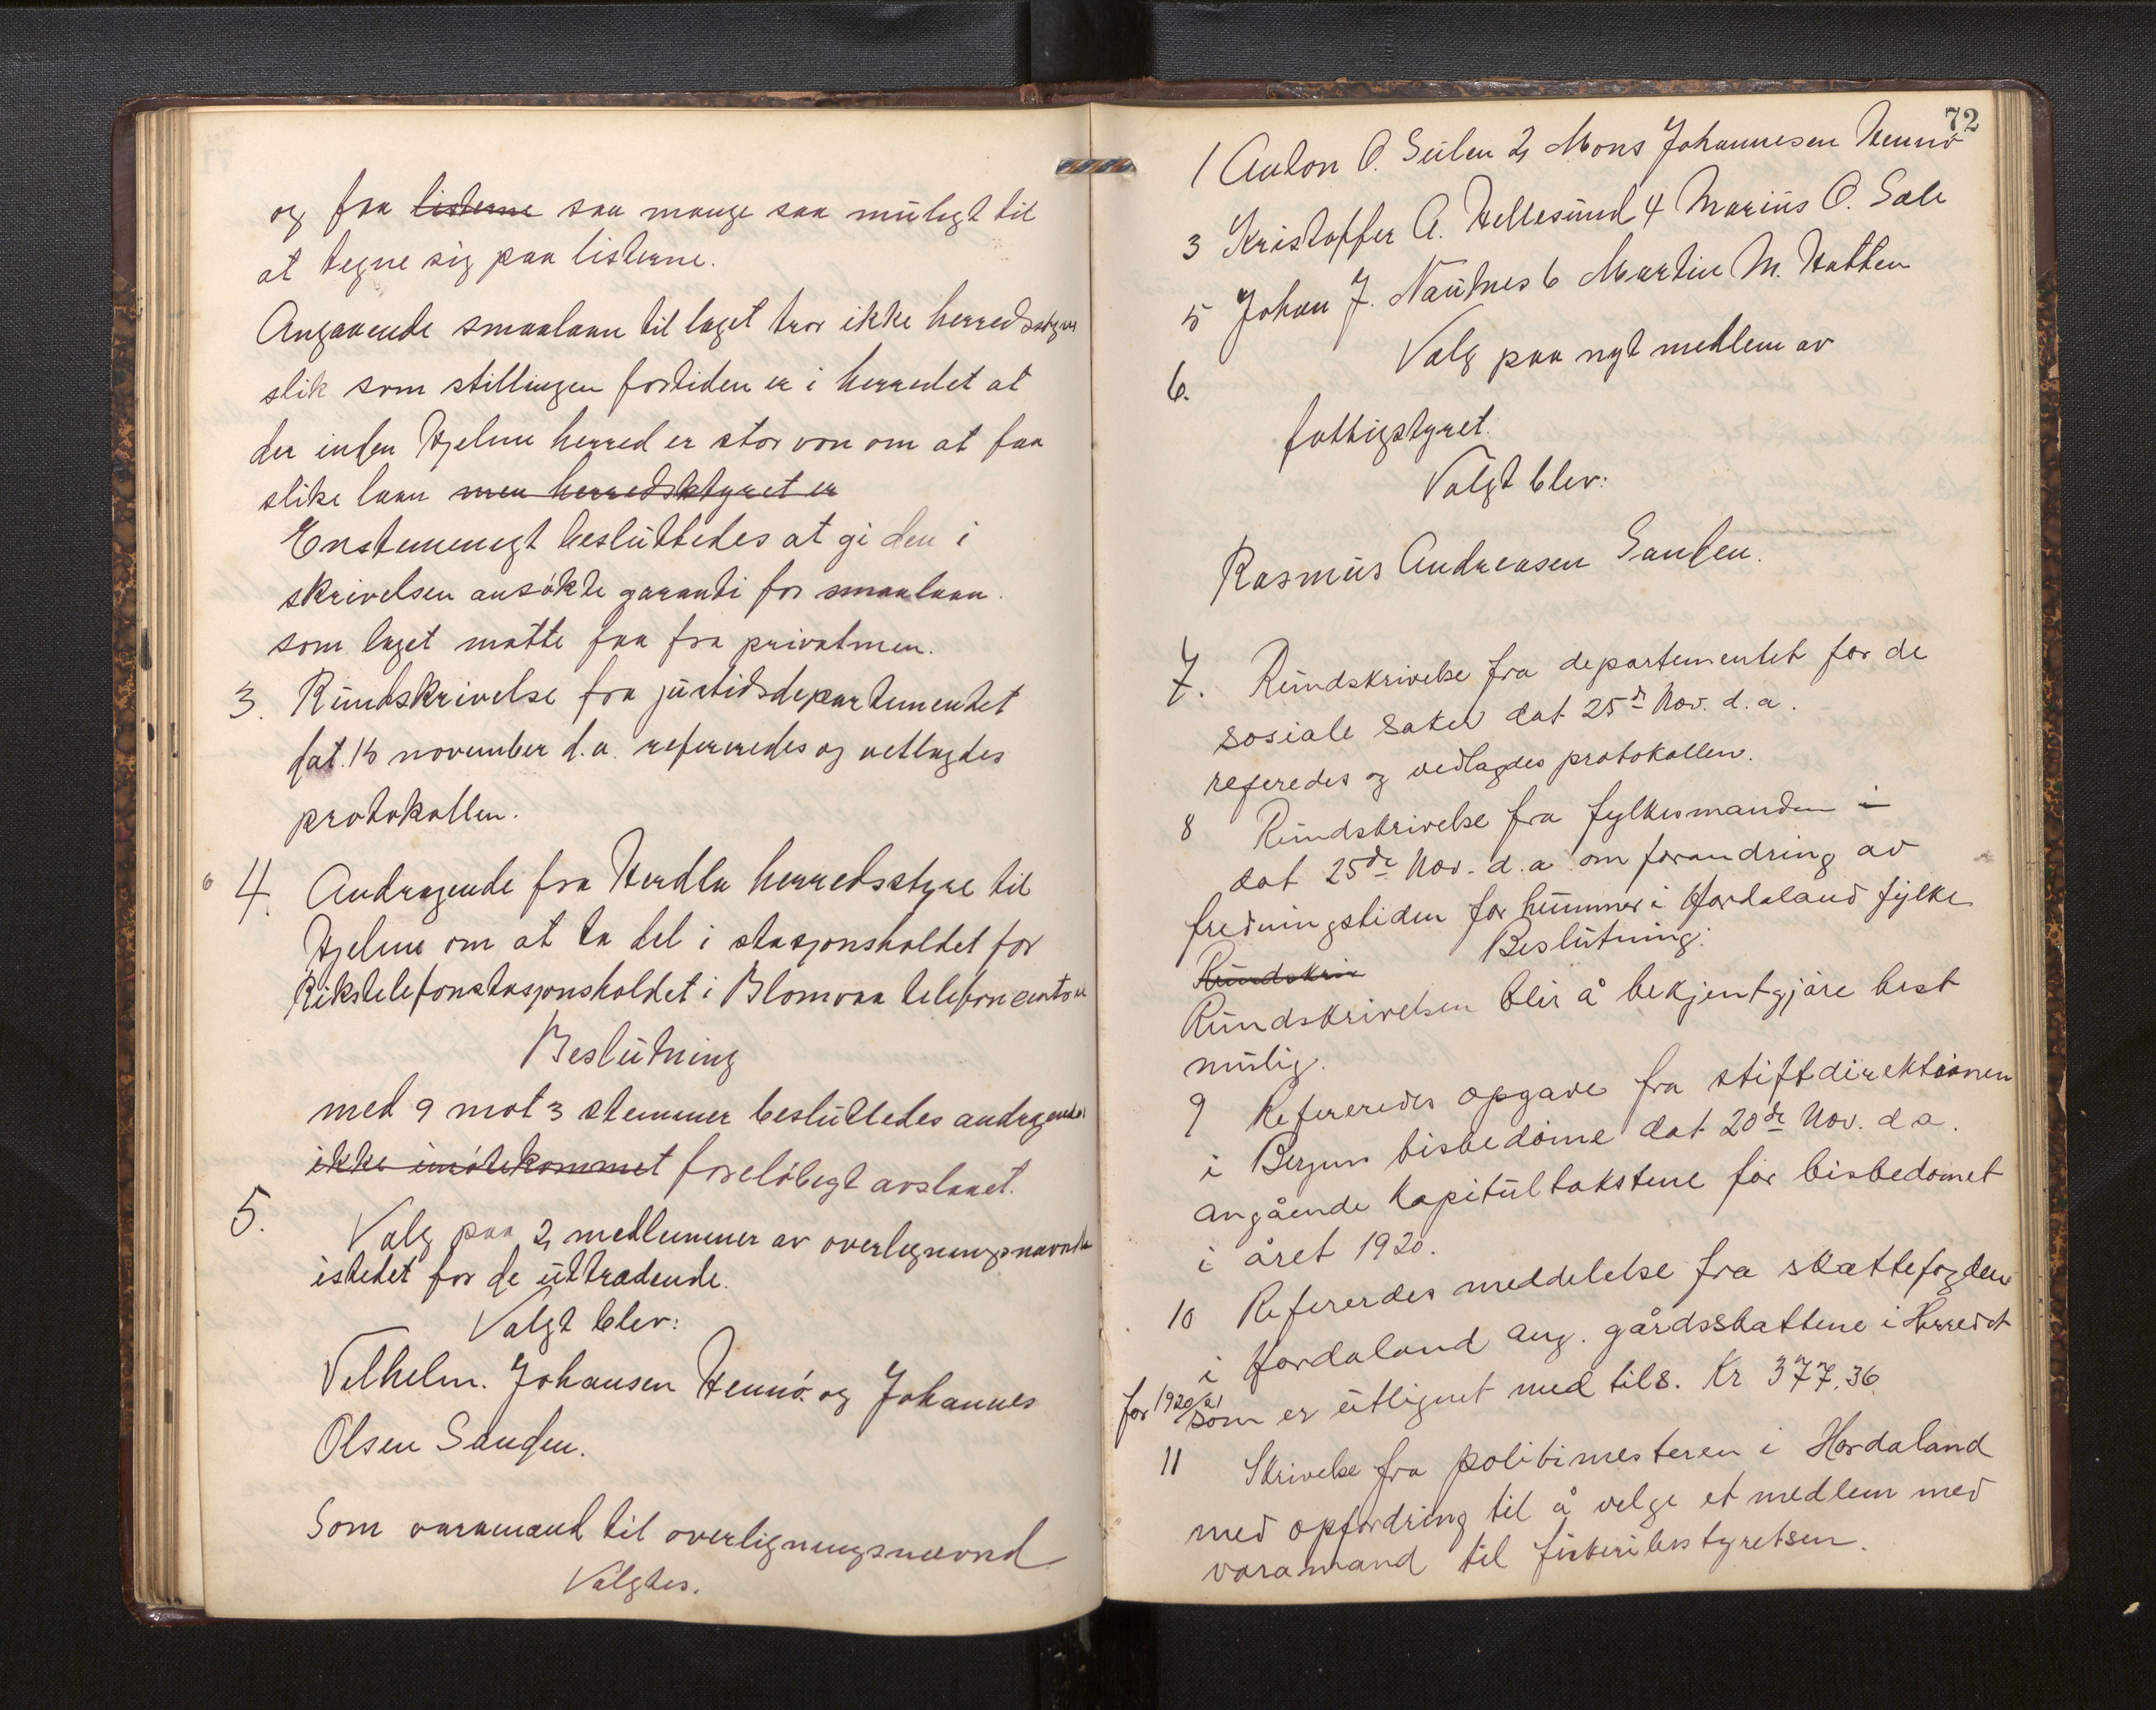 og faa ~~listerne~~ saa mange saa muligt til
at tegne sig paa listerne.
Angaaende smaalaan til laget tror ikke herredsstyre
slik som stillingen fortiden er i herredet at
der inden Hjelme herred er stor von om at faa
slike laan ~~men herredsktyret er~~
Enstemmegt besluttedes at gi den i
skrivelsen ansökte garanti for smaalaan.
som laget matte faa fra privatmen.
3. Rundskrivelse fra justisdepartementet
dat. 15 november d.a. refereredes og vetlagdes
protokollen.
4. Andragende fra Herdla herredsstyre til
Hjelme om at ta del i stasjonsholdet for
Rikstelefonstasjonsholdet i Blomvaa telefoncentral
Beslutning
med 9 mot 3 stemmer besluttedes andragende
~~ikke imötekommet~~ forelöbegt avslaaet.
5.
Valg paa 2 medlemmer av overlegningsnævnda
istedet for de uttrædende.
Valgt blev:
Velhelm. Johansen Hennö. og Johannes
Olsen Sanden.
Som varamand til overligningsnævnd
Valgtes.
72
1 Anton O. Seilen 2, Mons Johannesen Hennö
3 Kristoffer A. Hellesund 4 Marius O. Sæle
5 Johan J. Nautnes 6 Martin M. Hatten
Valg paa nyt medlem av
6.
fattigstyret.
Valgt blev:
Rasmus Andreasen Sanden.
7. Rundskrivelse fra departementet for de
sosiale saker dat 25de Nov. d.a.
referedes og vedlagdes protokollen.
8 Rundskrivelse fra fylkesmanden ~~i~~
dat 25de Nov. d.a om forandring av
fredningstiden for hummer i Hordaland fylke
Beslutning:
~~Rundskriv~~
Rundskrivelsen blir å bekjentgjöre best
mulig.
9 Refereredes opgave fra stiftdirektionen
i Bergens bisbedöme dat 20de Nov. d a.
angående kapitultakstene for bisbedömet
i året 1920.
10 Refererdes meddelelse fra skattefogden
i Hordaland ang. gårdsskattene i Herredet
for 1920/21 som er utlignet med tils. Kr 377,36
11 Skrivelse fra politimesteren i Hordaland
med opfordring til å velge et medlem med
varamand til fiskeribestyrelsen.